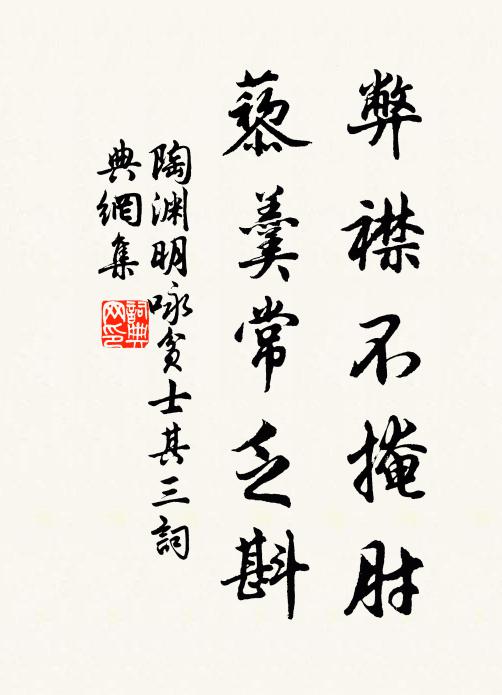 弊襟不掩肘
藜羹常乏斟
陶渊明咏贫士其三詞
典網集
詞典网印